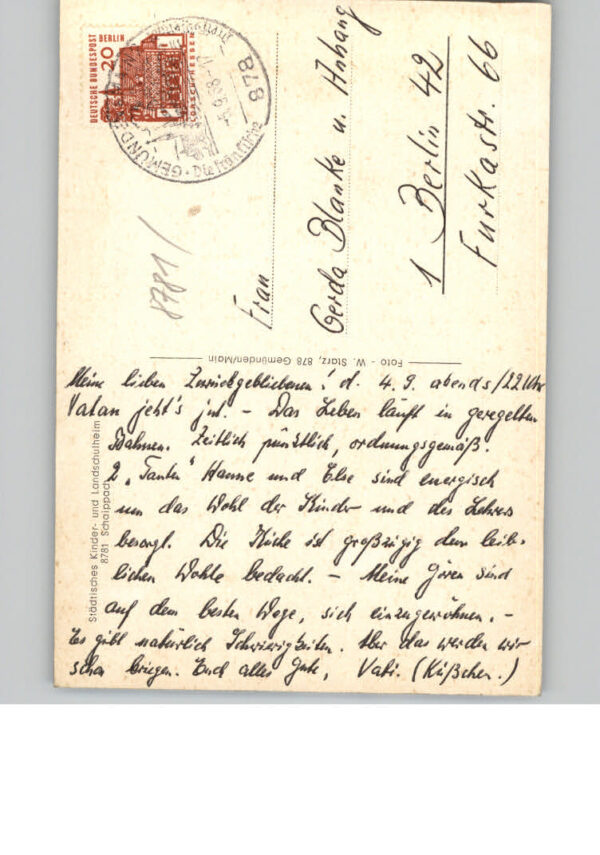 DEUTSCHE BUNDESPOST BERLIN
20
LORSCH/HESSEN
GEMÜNDEN
878
8781
Frau
Gerda Blanke u. Anhang
1 Berlin 42
Furkastr. 66
Foto - W. Starz, 878 Gemünden/Main
Städtisches Kinder- und Landschulheim
8781 Schaippach
Meine lieben Zurückgebliebenen! d. 4.9. abends/22 Uhr
Vatan jeht's jut. - Das Leben läuft in geregelten
Bahnen. Zeitlich pünktlich, ordnungsgemäß.
2 "Tanten" Hanne und Else sind energisch
um das Wohl der Kinder und des Lehrers
besorgt. Die Küche ist großzügig dem leib-
lichen Wohle bedacht. - Meine Gören sind
auf dem besten Wege, sich einzugewöhnen. -
Es gibt natürlich Schwierigkeiten. Aber das werden wir
schon kriegen. Euch alles Gute, Vati. (Küßchen.)